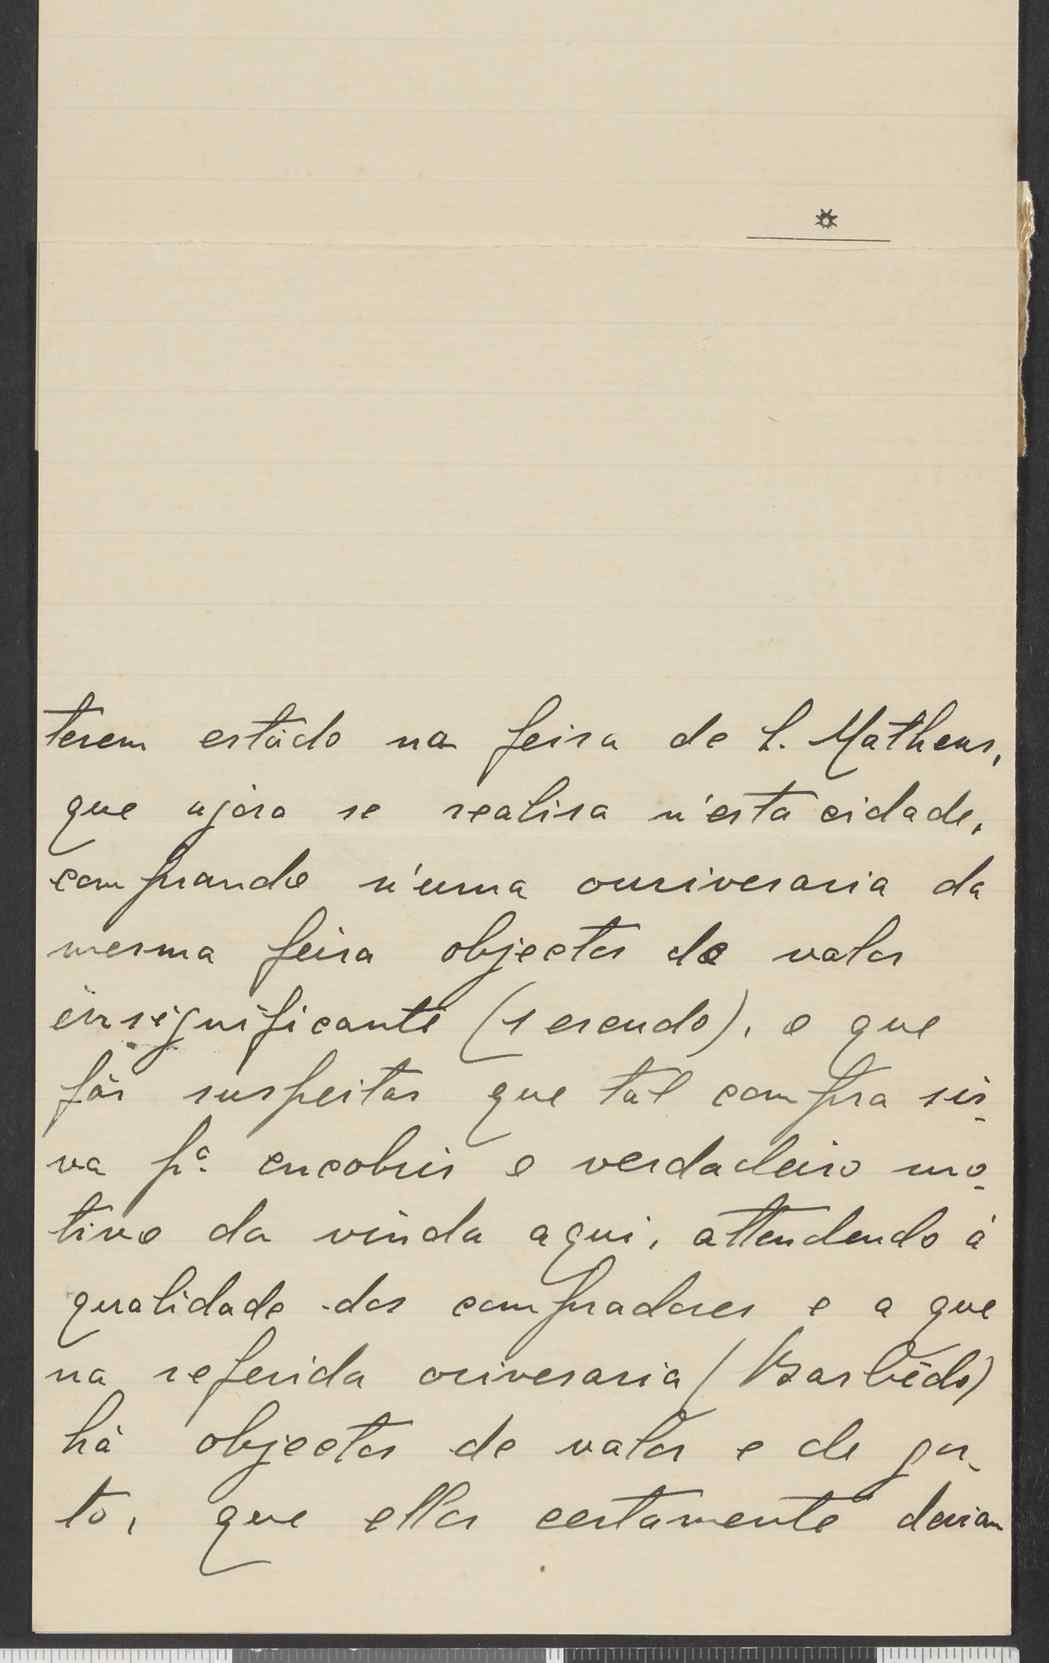 *
terem estado na feira de S. Matheus,
que agora se realisa n'esta cidade,
comprando n'uma ourivesaria da
mesma feira objectos de valor
insignificante (1 escudo), o que
fás suspeitar que tal compra sir-
va pª. encobrir o verdadeiro mo-
tivo da vinda aqui, attendendo á
qualidade dos compradores e a que
na referida orivesaria (Barbêdo)
há objectos de valor e de gos-
to, que elles certamente